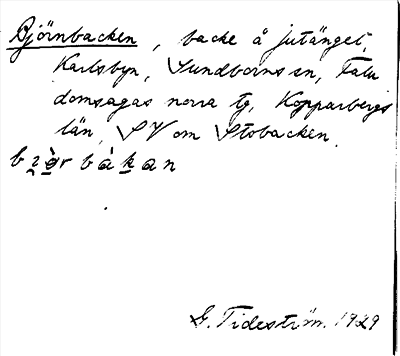 Björnbacken, backe å jutänget,
Karlsbyn, Sundborns sn, Falu
domsagas norra tg, Kopparbergs
län, SV om Stobacken.
G. Tideström 1929